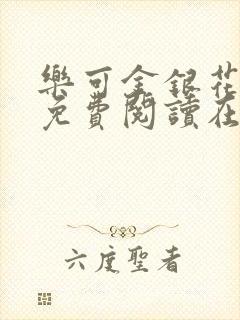 樂可金銀花
免費閱讀在
六度聖者